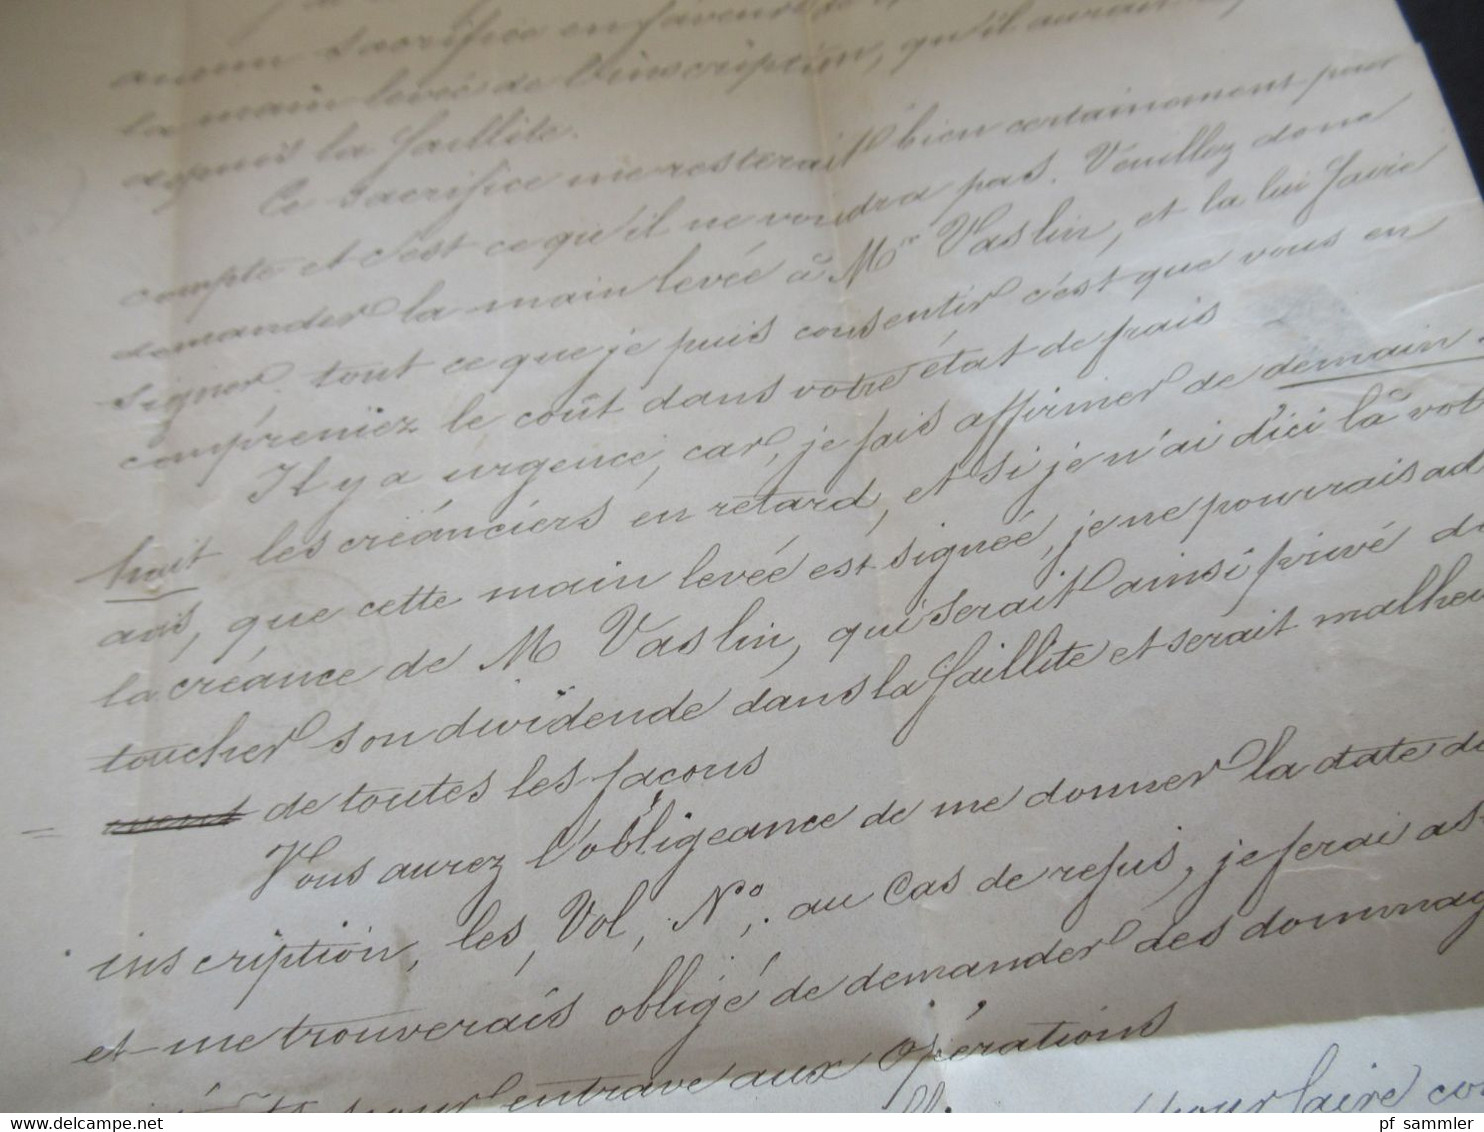 aucun sacrifice en faveur de
la main levée de l'inscription, qu'il aurait
depuis la faillite.
Ce sacrifice me resterait bien certainement pour
compte et c'est ce qu'il ne voudra pas. Veuillez donc
demander la main levée à Mr Vaslin, et la lui faire
signer. tout ce que je puis consentir c'est que vous en
compreniez le coût dans votre état de frais
Il y a urgence, car, je fais affirmer de demain
huit les créanciers en retard, et si je n'ai d'ici là vot
avis, que cette main levée est signée, je ne pourrais ad
la créance de M Vaslin, qui serait ainsi privé de
toucher son dividende dans la faillite et serait malheu
= de toutes les façons
Vous aurez l'obligeance de me donner la date de
inscription, les, Vol, No,. au cas de refus, je ferai as-
et me trouverais obligé de demander des dommag
pour entrave aux opérations
pour faire co
pf_sammler
www.delcampe.net